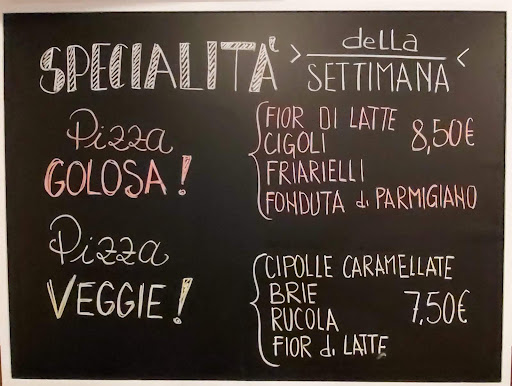 SPECIALITÀ > della SETTIMANA <
Pizza
GOLOSA!
FIOR DI LATTE
CIGOLI 8,50€
FRIARIELLI
FONDUTA di PARMIGIANO
Pizza
VEGGIE!
CIPOLLE CARAMELLATE
BRIE
RUCOLA 7,50€
FIOR di LATTE